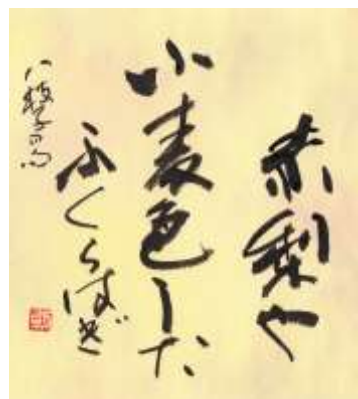 赤梨や
小麦色した
ふくらはぎ